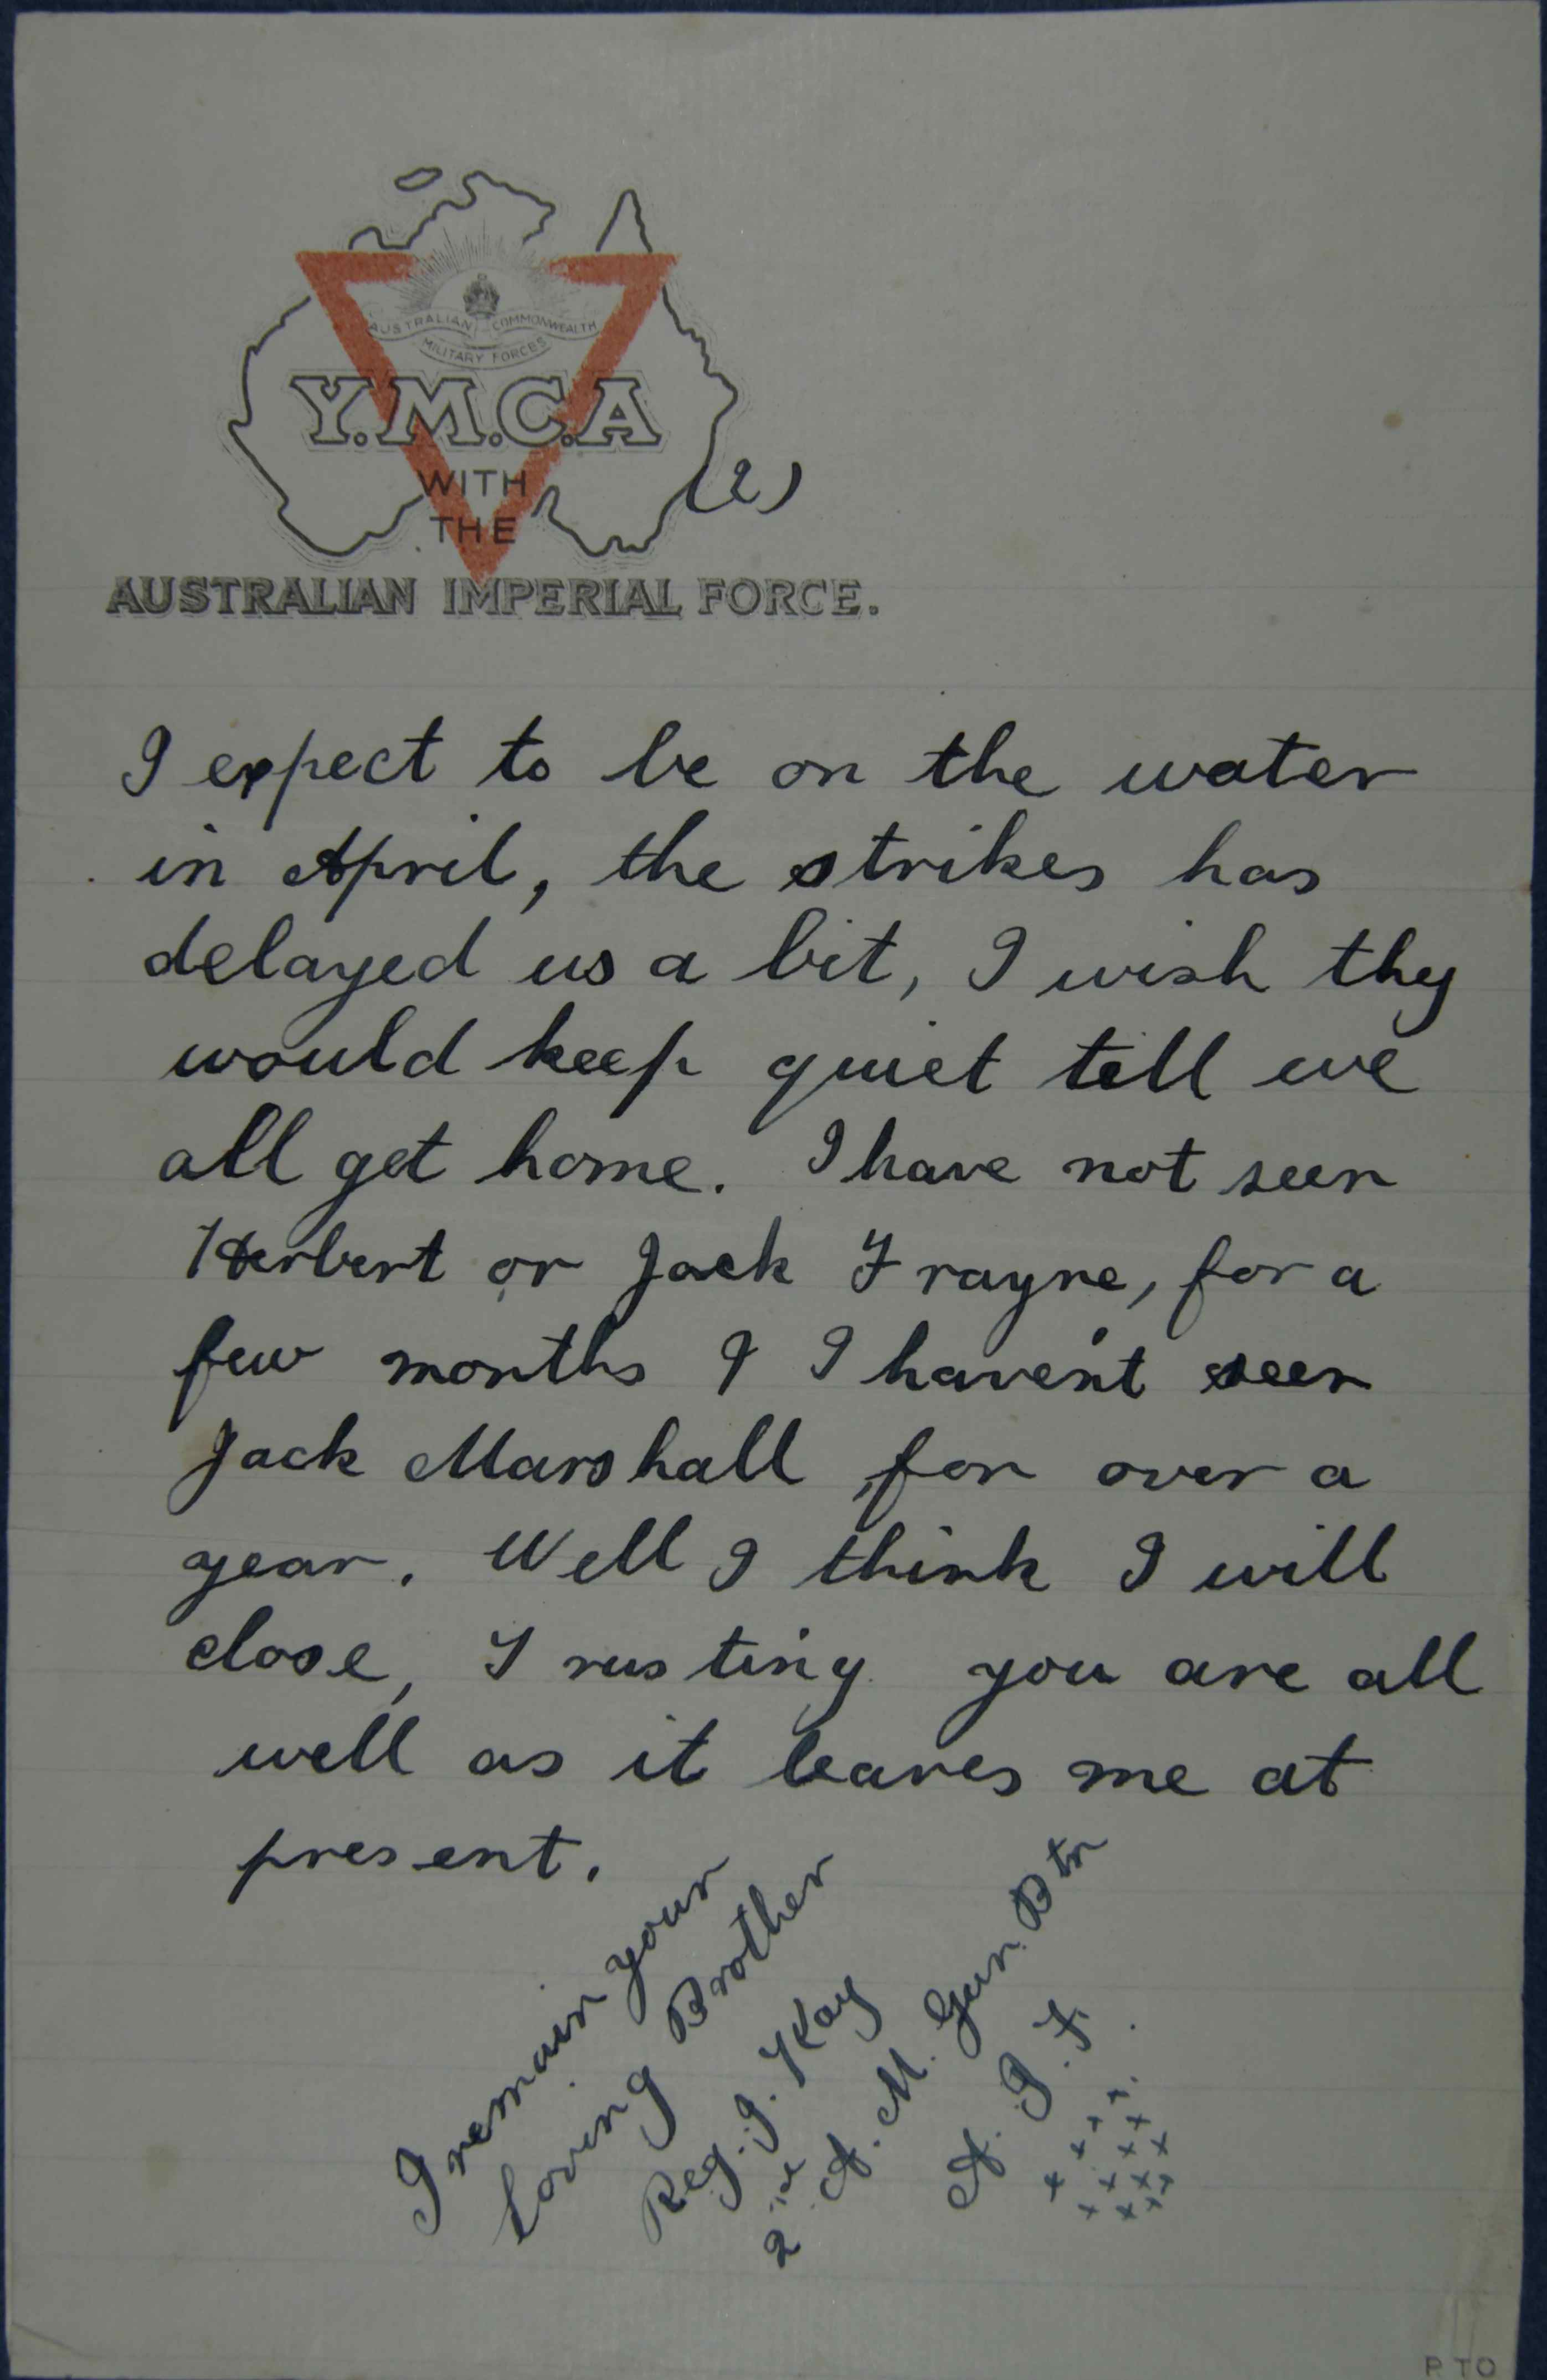 AUSTRALIAN COMMONWEALTH
MILITARY FORCES
Y.M.C.A
WITH
THE
(2)
AUSTRALIAN IMPERIAL FORCE.
I expect to be on the water
in April, the strikes has
delayed us a bit, I wish thy
would keep quiet till we
all get home. I have not seen
Herbert or Jack Frayne, for a
few months & I haven't seen
Jack Marshall, for over a
year. Well I think I will
close, Trusting you are all
well as it leaves me at
present.
I remain your
loving Brother
Reg. J. Kay
2nd A. M. Gun. Btn
A. I. F.
x x x x x x x x x x x x x
PTO